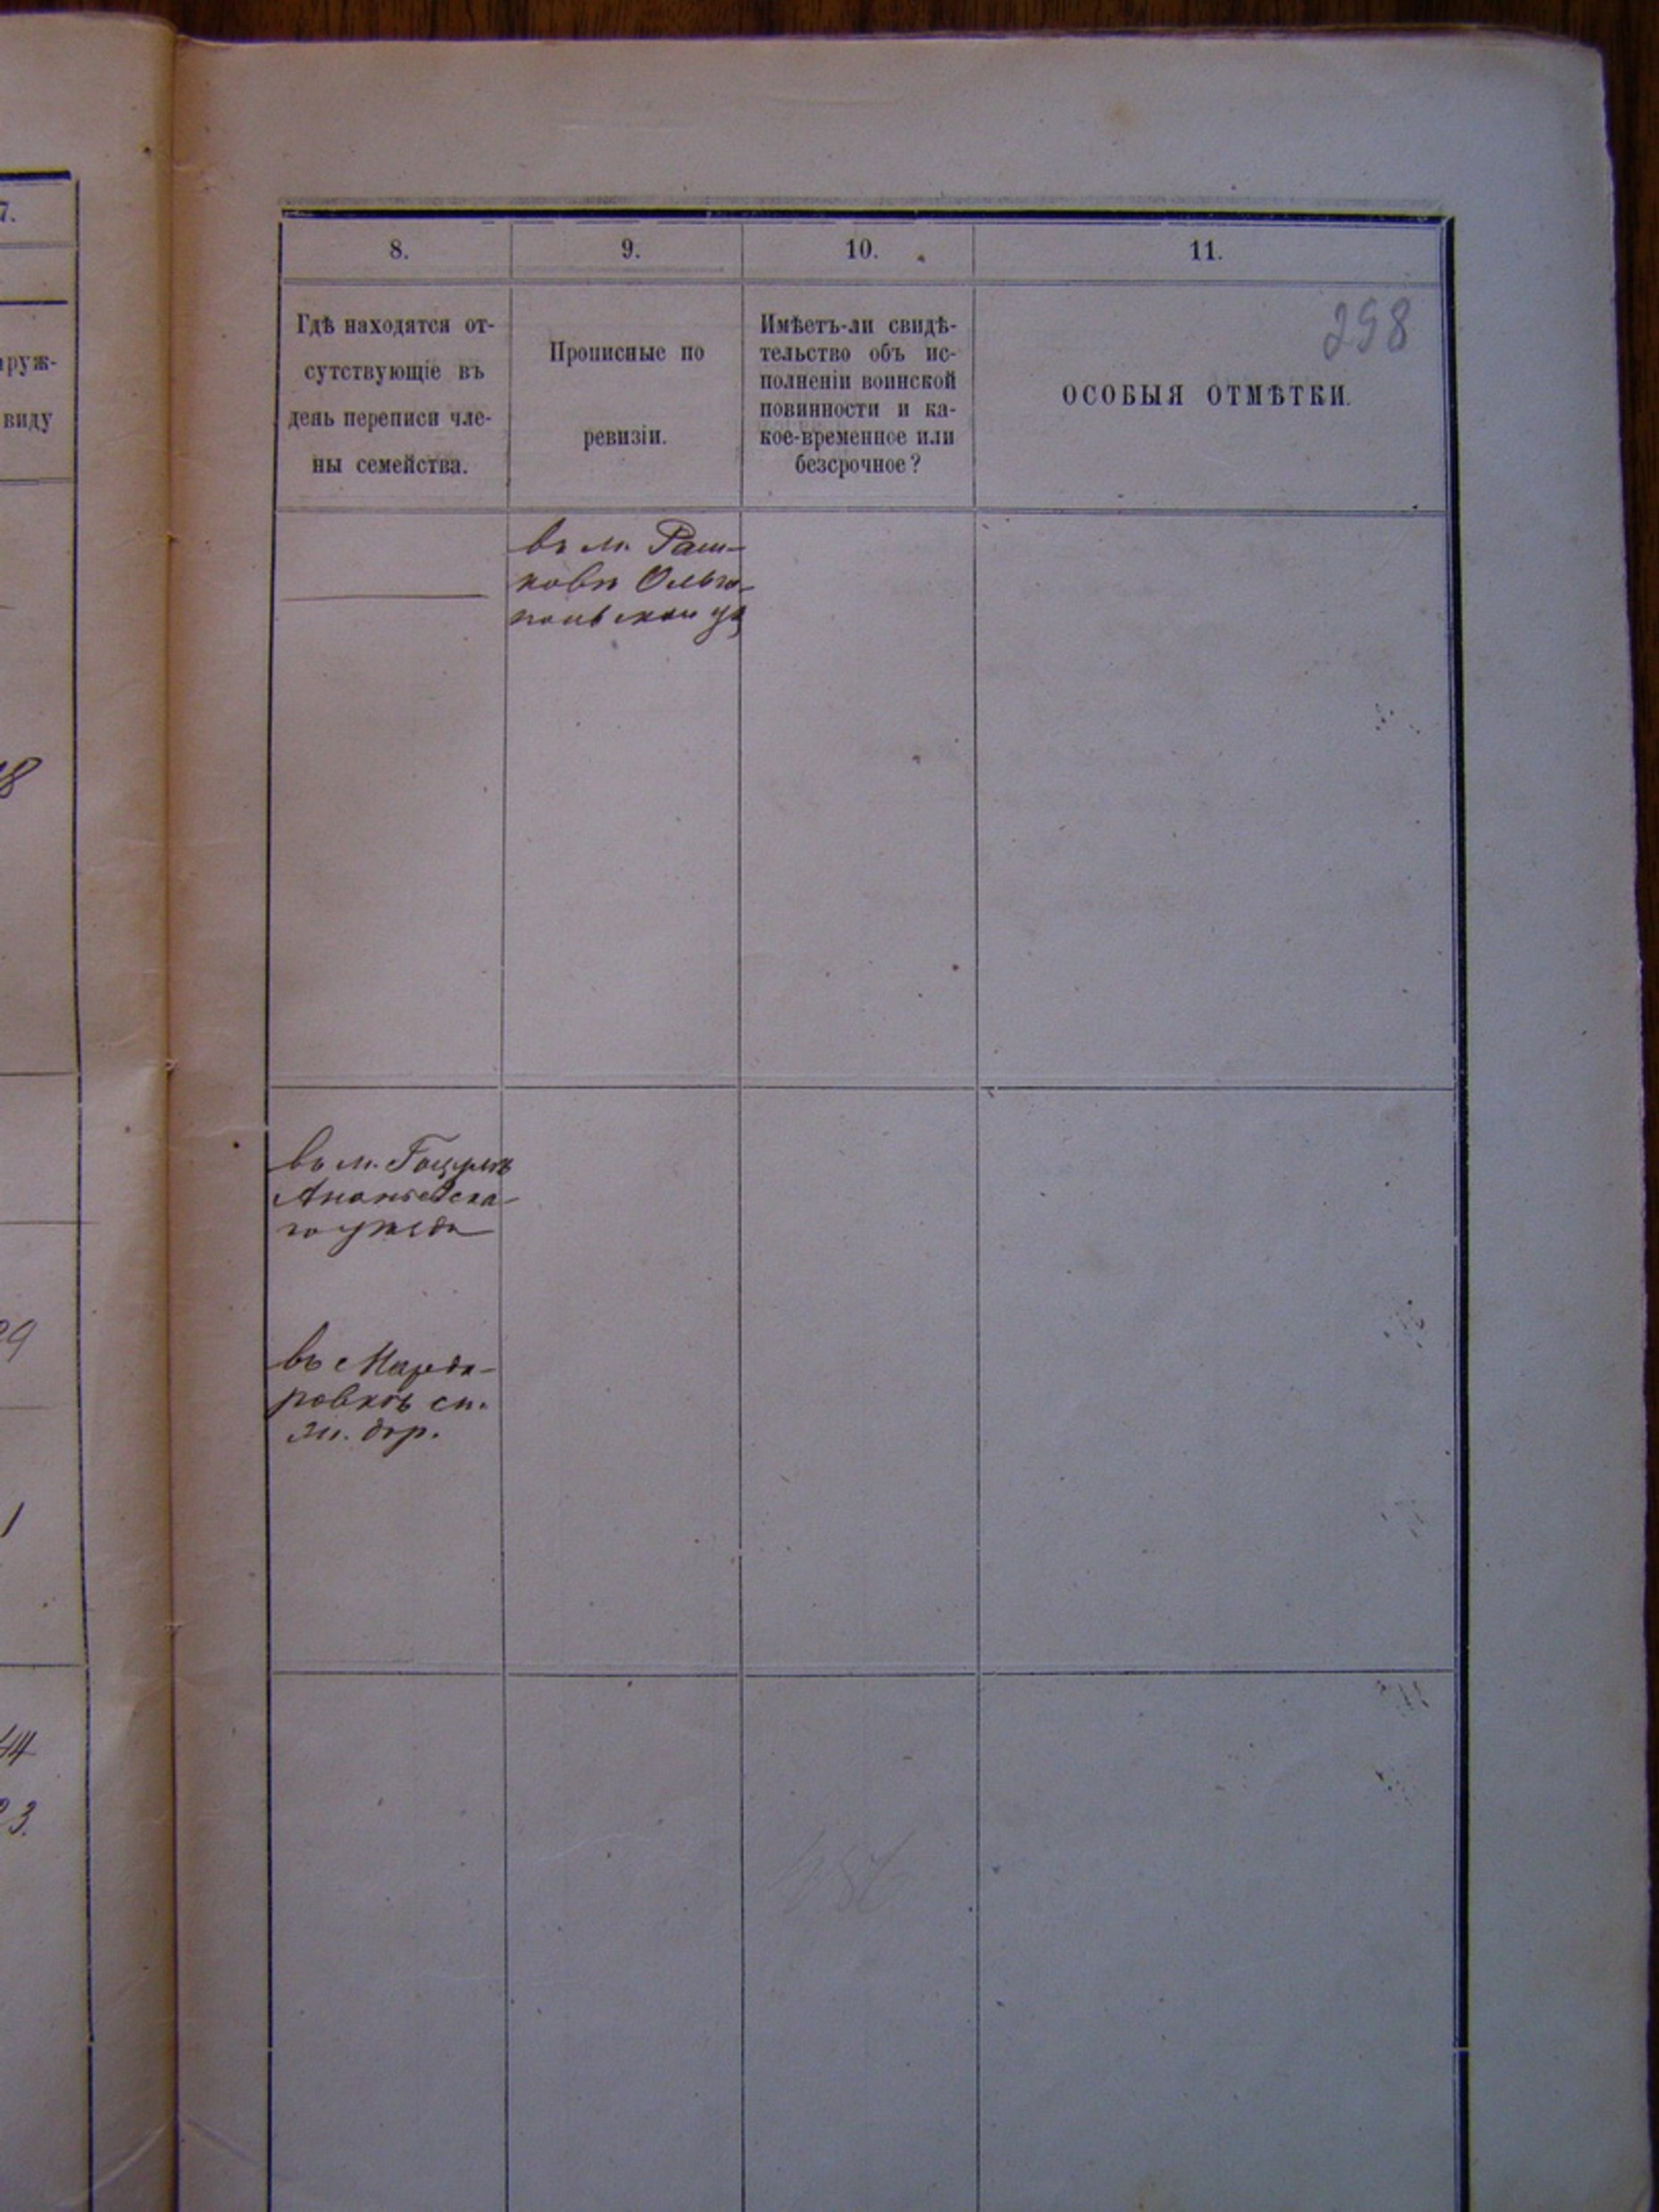 7.
аруж-
виду
18
29
1
44
23.
8.
9.
10.
11.
298
Гдѣ находятся от-
сутствующіе въ
день переписи чле-
ны семейства.
Прописные по
ревизіи.
Имѣетъ-ли свидѣ-
тельство объ ис-
полненіи воинской
повинности и ка-
кое-временное или
безсрочное?
ОСОБЫЯ ОТМѢТКИ.
въ м. Раш-
ковѣ Ольго-
польскаго у
въ м.
Ананьевска-
го уѣзда
въ Марда-
ровкѣ ст.
ж. дор.